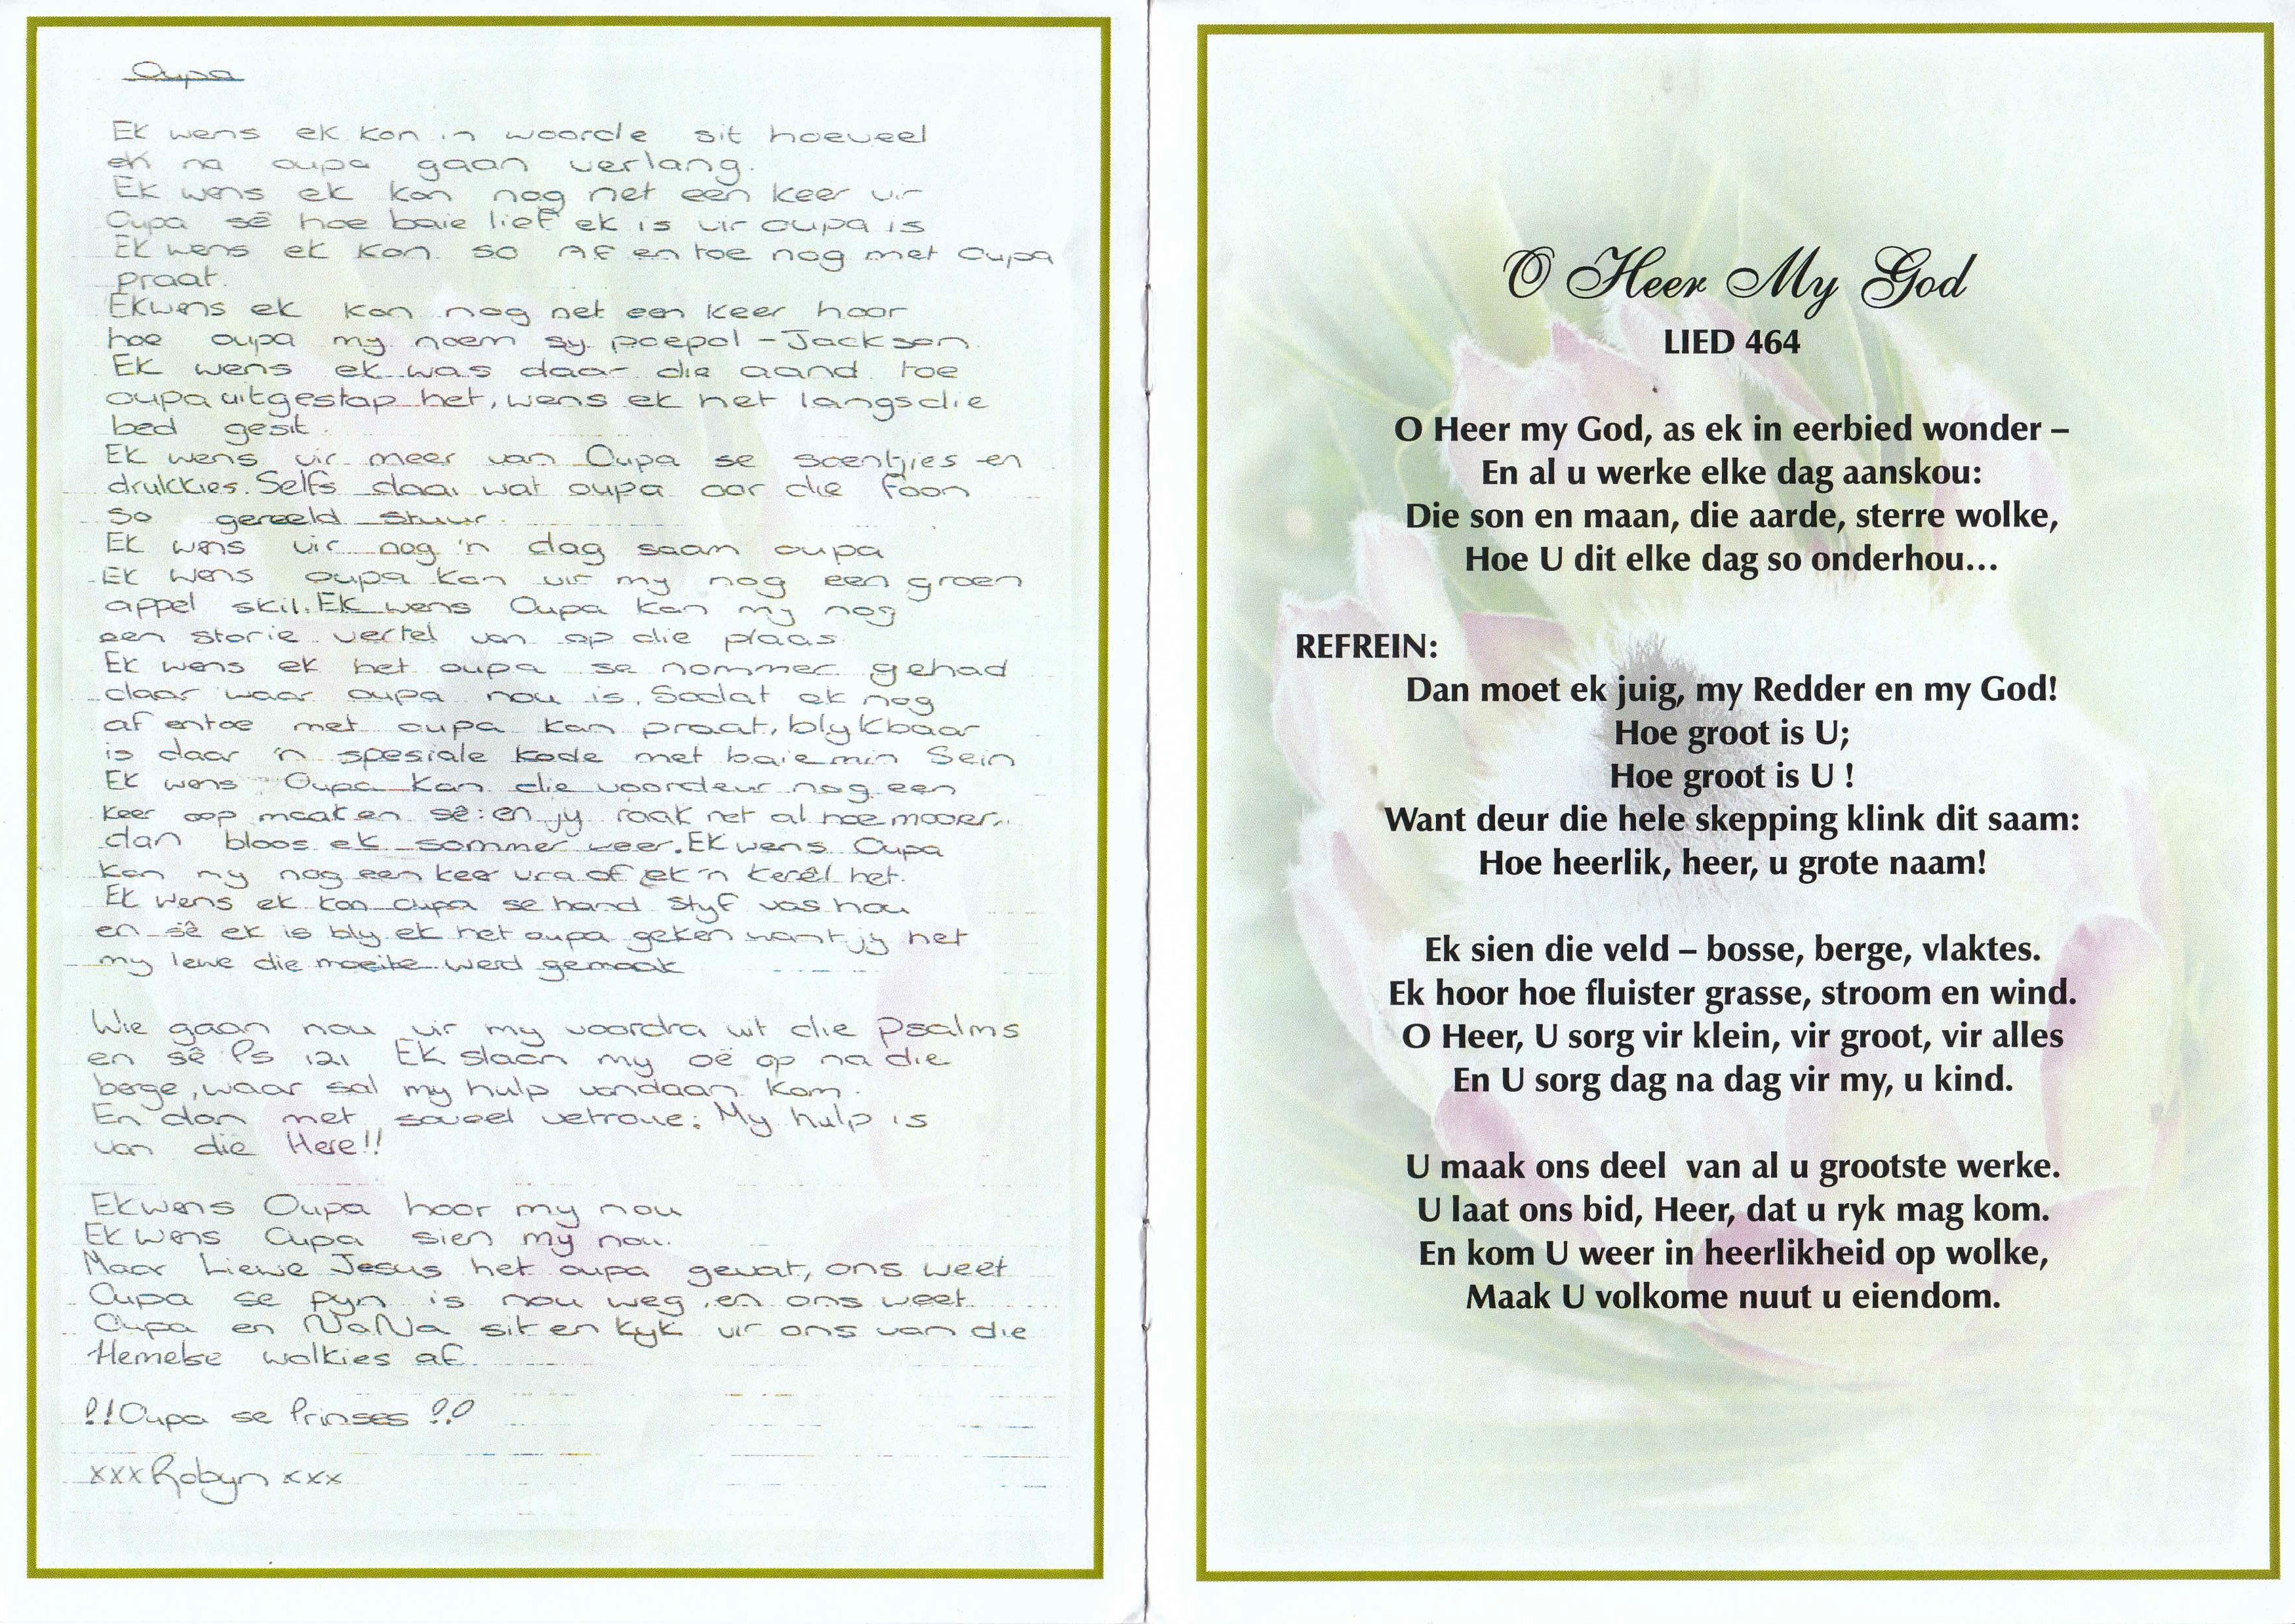 Oupa
Ek wens ek kon in woorde sit hoeveel
ek na oupa gaan verlang.
Ek wens ek kon nog net een keer vir
Oupa sê hoe baie lief ek is vir oupa is
Ek wens ek kon so Af en toe nog met Oupa
praat.
Ek wens ek kon nog net een keer hoor
hoe oupa my noem sy poepol - Jackson.
Ek wens ek was daar die aand toe
oupa uitgestap het, wens ek het langs die
bed gesit.
Ek wens vir meer van Oupa se soentjies en
drukkies. Selfs daai wat oupa oor die foon
so gereeld stuur.
Ek wens vir nog 'n dag saam oupa
Ek wens oupa kan vir my nog een groen
appel skil. Ek wens Oupa kan my nog
een storie vertel van op die plaas.
Ek wens ek het oupa se nommer gehad
daar waar oupa nou is. Sodat ek nog
af entoe met oupa kan praat, blykbaar
is daar 'n spesiale kode met baie min Sein
Ek wens Oupa kan die voordeur nog een
keer oop maak en sê: en jy raak net al hoe mooier..
dan bloos ek sommer weer. Ek wens Oupa
kan my nog een keer vra of ek 'n kerêl het.
Ek wens ek kon oupa se hand styf vas hou
en sê ek is bly ek het oupa geken want jy het
my lewe die moeite werd gemaak
Wie gaan nou vir my voordra uit die Psalms
en sê Ps 121 Ek slaan my oë op na die
berge, waar sal my hulp vandaan kom.
En dan met soveel vetroue: My hulp is
van die Here!!
Ek wens Oupa hoor my nou
Ek wens Oupa sien my nou.
Maar Liewe Jesus het oupa gevat, ons weet
Oupa se pyn is nou weg, en ons weet
Oupa en NaNa sit en kyk vir ons van die
Hemelse wolkies af.
!!Oupa se Prinses !!
xxx Robyn xxx
O Heer My God
LIED 464
O Heer my God, as ek in eerbied wonder –
En al u werke elke dag aanskou:
Die son en maan, die aarde, sterre wolke,
Hoe U dit elke dag so onderhou...
REFREIN:
Dan moet ek juig, my Redder en my God!
Hoe groot is U;
Hoe groot is U !
Want deur die hele skepping klink dit saam:
Hoe heerlik, heer, u grote naam!
Ek sien die veld – bosse, berge, vlaktes.
Ek hoor hoe fluister grasse, stroom en wind.
O Heer, U sorg vir klein, vir groot, vir alles
En U sorg dag na dag vir my, u kind.
U maak ons deel van al u grootste werke.
U laat ons bid, Heer, dat u ryk mag kom.
En kom U weer in heerlikheid op wolke,
Maak U volkome nuut u eiendom.